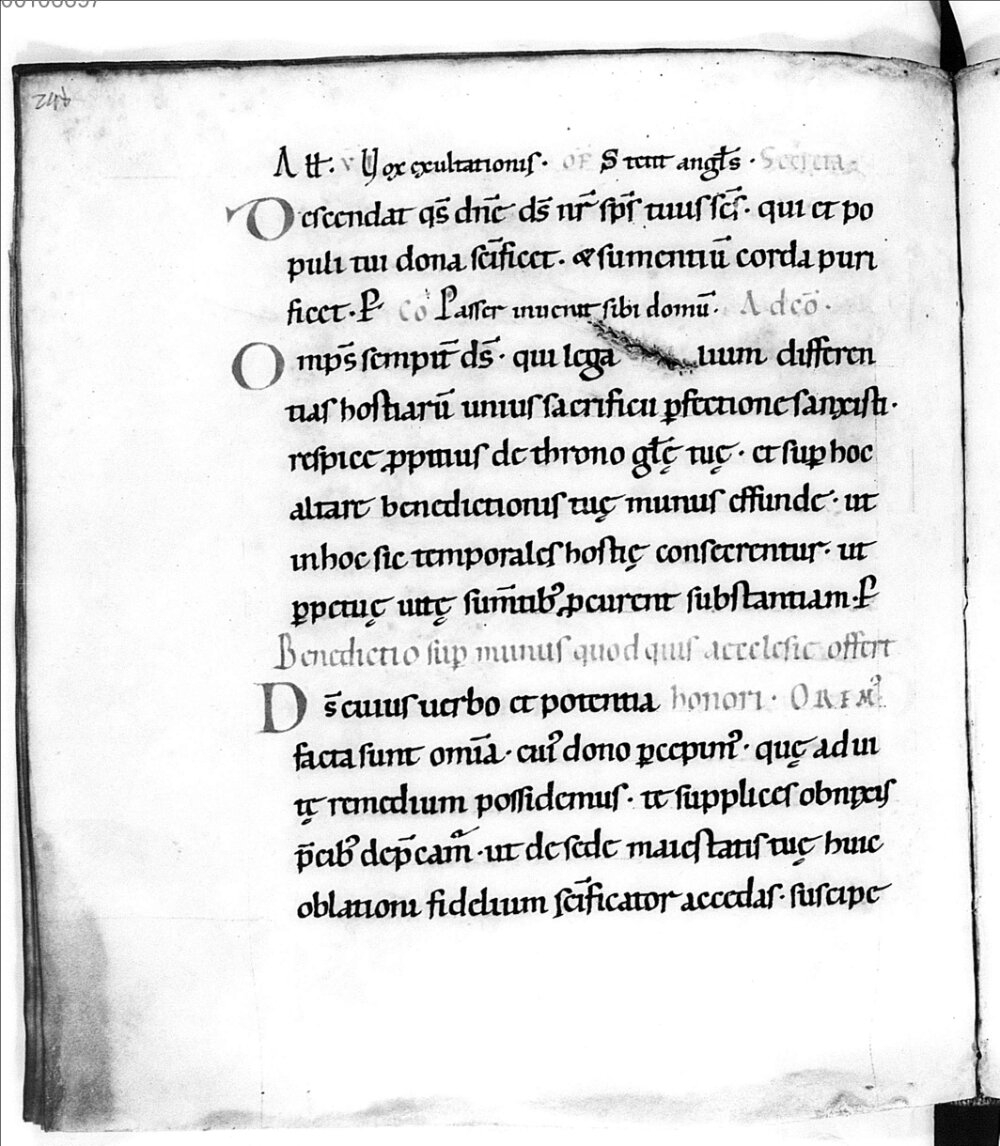 00108897
246
All̄. v Vox exultationis. Of Stetit angl̄s. Secreta
Descendat q̄s dn̄e ds̄ nr̄ sp̄s tuus sc̄s. qui et po
puli tui dona sc̄ificet. & sumentiū corda puri
ficet. P Cō Passer inuenit sibi domū. Ad cō.
Omps̄ sempit̄ ds̄. qui lega liuum differen
tias hostiarū unius sacrificii ꝑfectione sanxisti.
respice ꝓpitius de throno gl̄ę tuę. et suꝑ hoc
altare benedictionis tuę munus effunde. ut
in hoc sic temporales hostię consecrentur. ut
ꝑpetuę uitę sum̄tibꝰ ꝓcurent substantiam. P
Benedictio suꝑ munus quod quis aecclesie offert
Ds̄ cuius uerbo et potentia honori.
facta sunt om̄ia. cuiꝰ dono ꝑcepimꝰ. quę ad ui
tę remedium possidemus. te supplices obnixis
p̄cibꝰ dep̄camꝰ. ut de sede maiestatis tuę huic
oblationi fidelium sc̄ificator accedas. suscipe